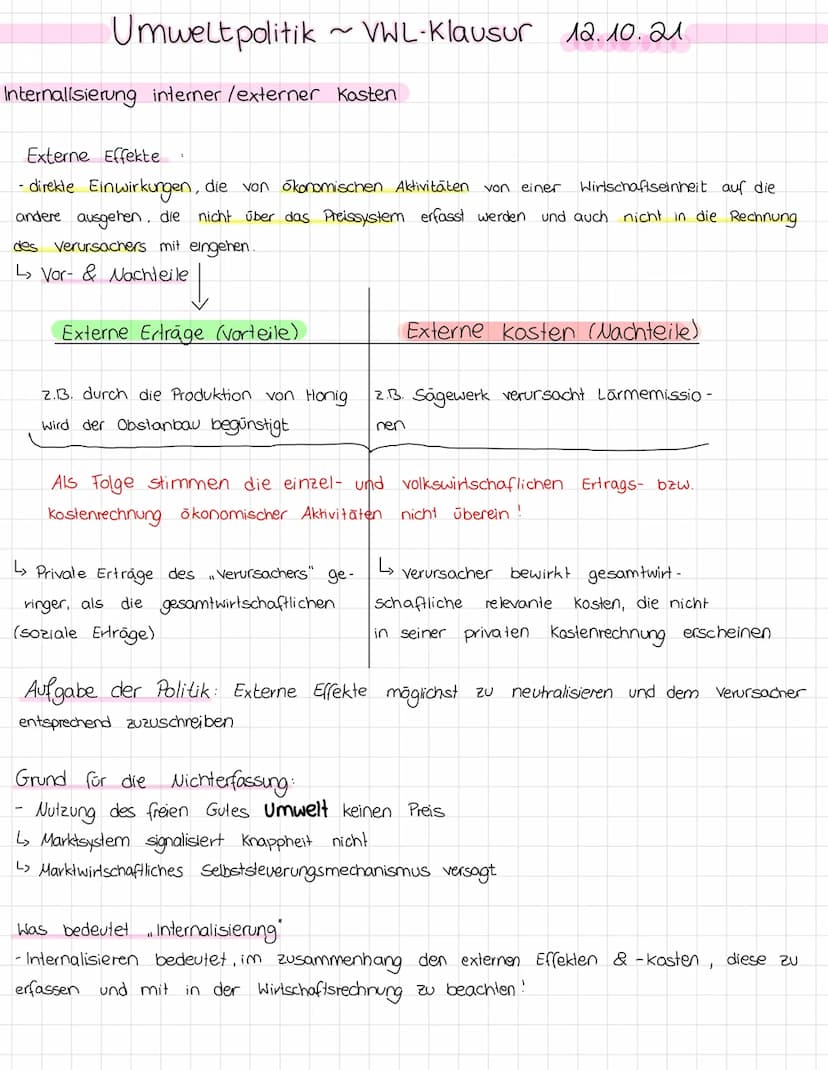 Umweltpolitik ~ VWL-Klausur 12.10.21
Internalisierung interner/externer Kosten
Externe Effekte :
- direkte Einwirkungen, die von ökonomischen Aktivitäten von einer Wirtschaftseinheit auf die
andere ausgehen, die nicht über das Preissystem erfasst werden und auch nicht in die Rechnung
des Verursachers mit eingehen.
↳ Vor- & Nachteile
Externe Erträge (Vorteile)
z.B. durch die Produktion von Honig
wird der Obstanbau begünstigt
Externe Kosten (Nachteile)
z.B. Sägewerk verursacht Lärmemissio-
nen
Als Folge stimmen die einzel- und volkswirtschaflichen Ertrags- bzw.
Kostenrechnung ökonomischer Aktivitäten nicht überein!
↳ Private Erträge des „Verursachers" ge-
ringer, als die gesamtwirtschaftlichen
(soziale Erträge)
↳ Verursacher bewirkt gesamtwirt-
schaftliche relevante Kosten, die nicht
in seiner privaten Kostenrechnung erscheinen
Aufgabe der Politik: Externe Effekte möglichst zu neutralisieren und dem Verursacher
entsprechend zuzuschreiben
Grund für die Nichterfassung:
- Nutzung des freien Gutes Umwelt keinen Preis
↳ Marktsystem signalisiert Knappheit nicht
↳ Marktwirtschaftliches Selbststeuerungsmechanismus versagt
Was bedeutet „Internalisierung"
- Internalisieren bedeutet, im zusammenhang den externen Effekten & -kosten, diese zu
erfassen und mit in der Wirtschaftsrechnung zu beachten!